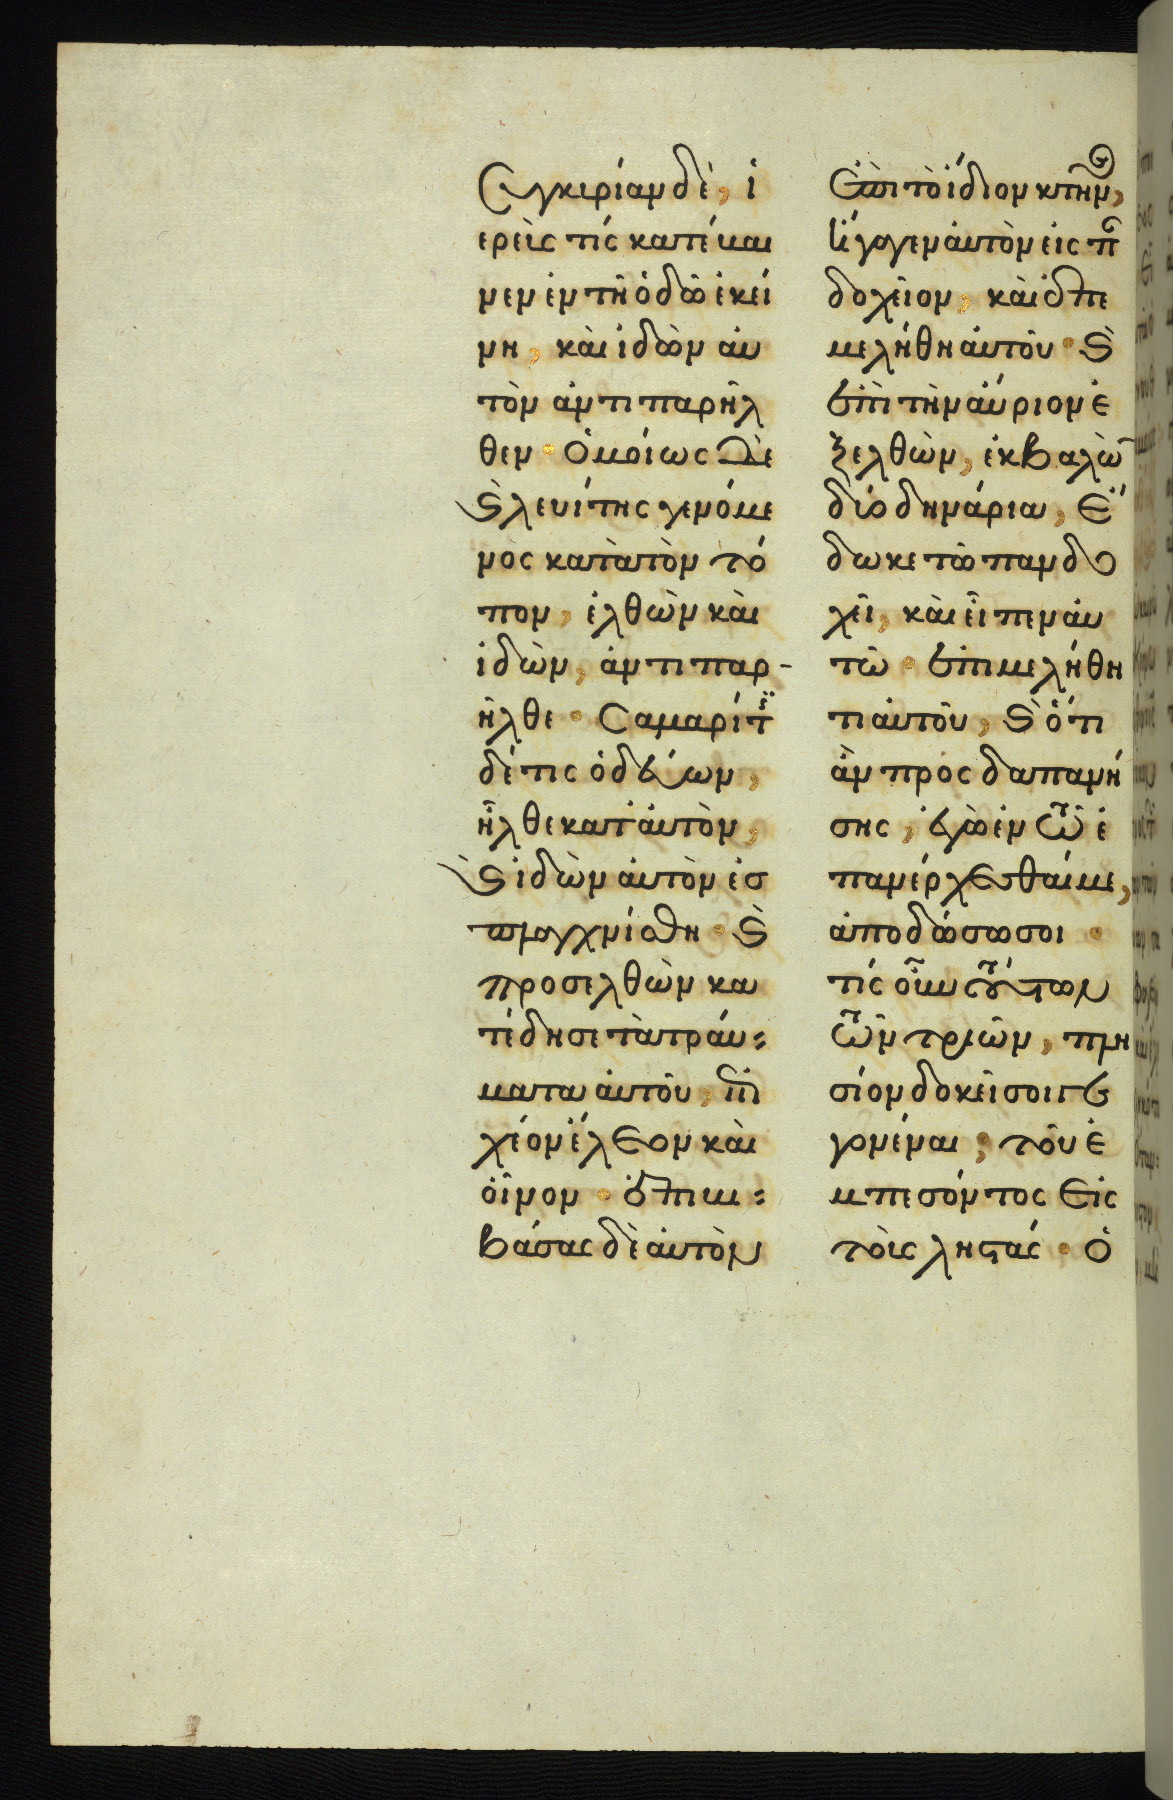 Συγκιρίαν δὲ, ἱ
ερεὺς τίς κατέβαι
νεν ἐν τῆ ὁδῶ ἐκεί
νη, καὶ ἰδὼν αὐ
τὸν ἀντιπαρῆλ
θεν· Ὁμοίως δὲ
ϗ λευίτης γενόμε
νος κατὰ τὸν τό
πον, ἐλθὼν καὶ
ἰδὼν, ἀντιπαρ-
ῆλθε· Σαμαρίτ
δέ τις ὁδεύων,
ἦλθε κατ' αὐτὸν,
ϗ ἰδὼν αὐτὸν ἐσ
πλαγχνίσθη· ϗ
προσελθὼν κα
τέδησε τὰ τραύ
ματα αὐτοῦ, ἐπι
χέον ἔλεον καὶ
οἶνον· ἐπιβι
βάσας δὲ αὐτὸν
ἐπὶ τὸ ἴδιον κτῆν,
ἤγαγεν αὐτὸν εἰς π
δοχεῖον, καὶ ἐπε
μελήθη αὐτοῦ· ϗ
ἐπὶ τὴν αὔριον ἐ
ξελθὼν, ἐκβαλὼ
δύο δηνάρια, ἔ
δωκε τῶ πανδο
χεῖ, καὶ εἶπεν αὐ
τῶ· ἐπιμελήθη
τι αὐτοῦ, ϗ ὅ τι
ἂν προς δαπανή
σης, ἐγὼ ἐν τῶ ἐ
πανέρχεσθαί με,
ἀποδώσω σοι·
τίς οὖν τούτων
τῶν τριῶν, πλη
σίον δοκεῖ σοι γε
γονέναι, τοῦ ἐ
μπεσόντος εἰς
τοὺς ληστάς· ὁ